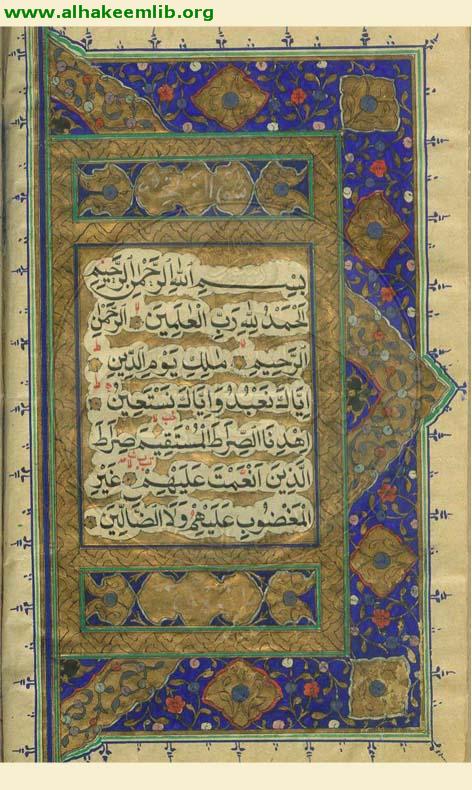 www.alhakeemlib.org
بِسْمِ اللّٰهِ الرَّحْمٰنِ الرَّحِيْمِ
اَلْحَمْدُ لِلّٰهِ رَبِّ الْعٰلَمِيْنَ الرَّحْمٰنِ
الرَّحِيْمِ مٰلِكِ يَوْمِ الدِّيْنِ
اِيَّاكَ نَعْبُدُ وَاِيَّاكَ نَسْتَعِيْنُ
اِهْدِنَا الصِّرَاطَ الْمُسْتَقِيْمَ صِرَاطَ
الَّذِيْنَ اَنْعَمْتَ عَلَيْهِمْ غَيْرِ
الْمَغْضُوْبِ عَلَيْهِمْ وَلَا الضَّآلِّيْنَ